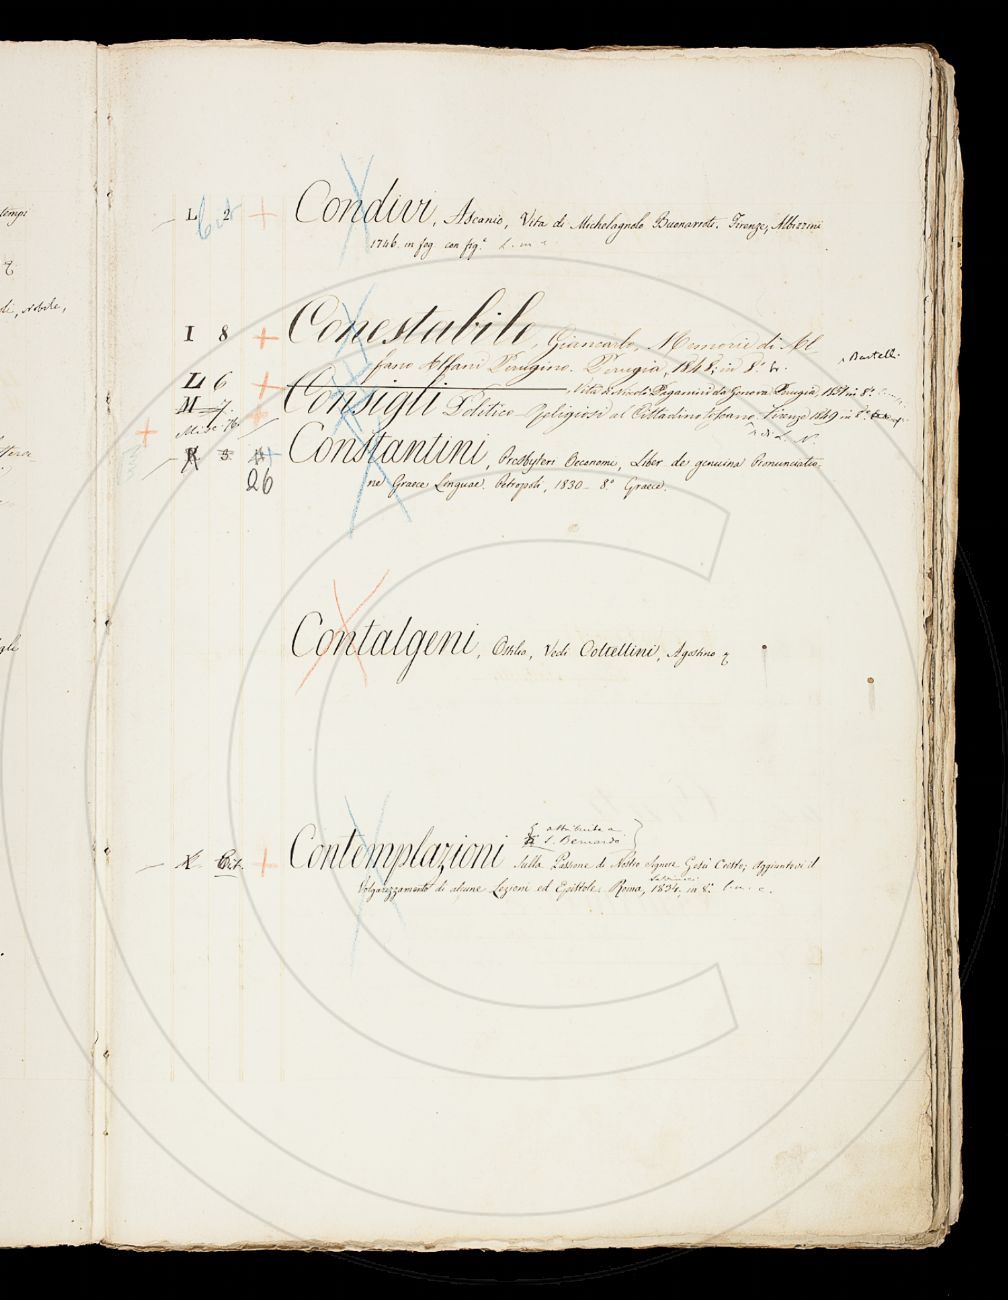 L 2 + Condivi, Ascanio, Vita di Michelagnolo Buonarroti. Firenze, Albizzini
1746. in fog. con fig.e l. m. c.
I 8 + Conestabile, Giancarlo, Memorie di Al
fano Alfani Perugino. Perugia, 1848, in 8.° br. Bartelli
L 6 + Vita di Nicolò Paganini da Genova. Perugia, 1851 in 8.°
M 7. + Consigli Politico-Religiosi al Cittadino Toscano. Firenze 1849 in 8.°
Misc. 76. di L. N.
R 3. Constantini, Presbyteri Oeconomi, Liber de genuina Pronunciatio
26 ne Graece Linguae. Petropoli, 1830 - 8.° Graece.
Contalgeni, Ostilio, Vedi Coltellini, Agostino
attribuite a
S. Bernardo
Cit. + Contemplazioni sulla Passione di Nostro Signore Gesù Cristo; Aggiuntovi il
Volgarizzamento di alcune Lezioni ed Epistole. Roma, 1834, in 8.° l. m. c.
tempi
Nobile,